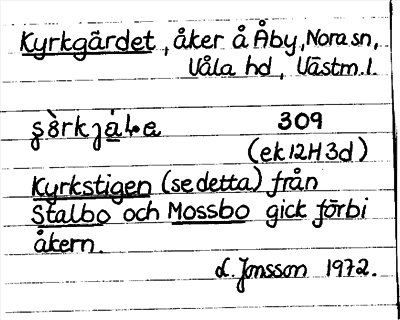 Kyrkgärdet, åker å Åby, Nora sn,
Våla hd, Västm.l.
309
(ek 12H 3d)
Kyrkstigen (se detta) från
Stalbo och Mossbo gick förbi
åkern.
L. Jonsson 1972.